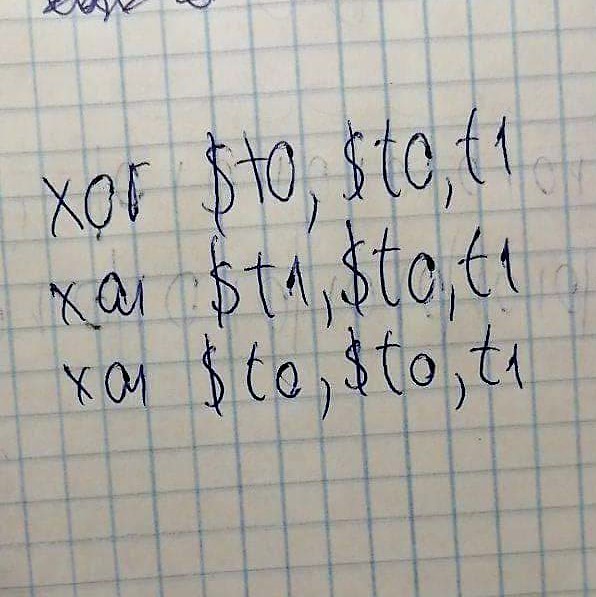 xor $t0, $t0, t1
xor $t1, $t0, t1
xor $t0, $t0, t1